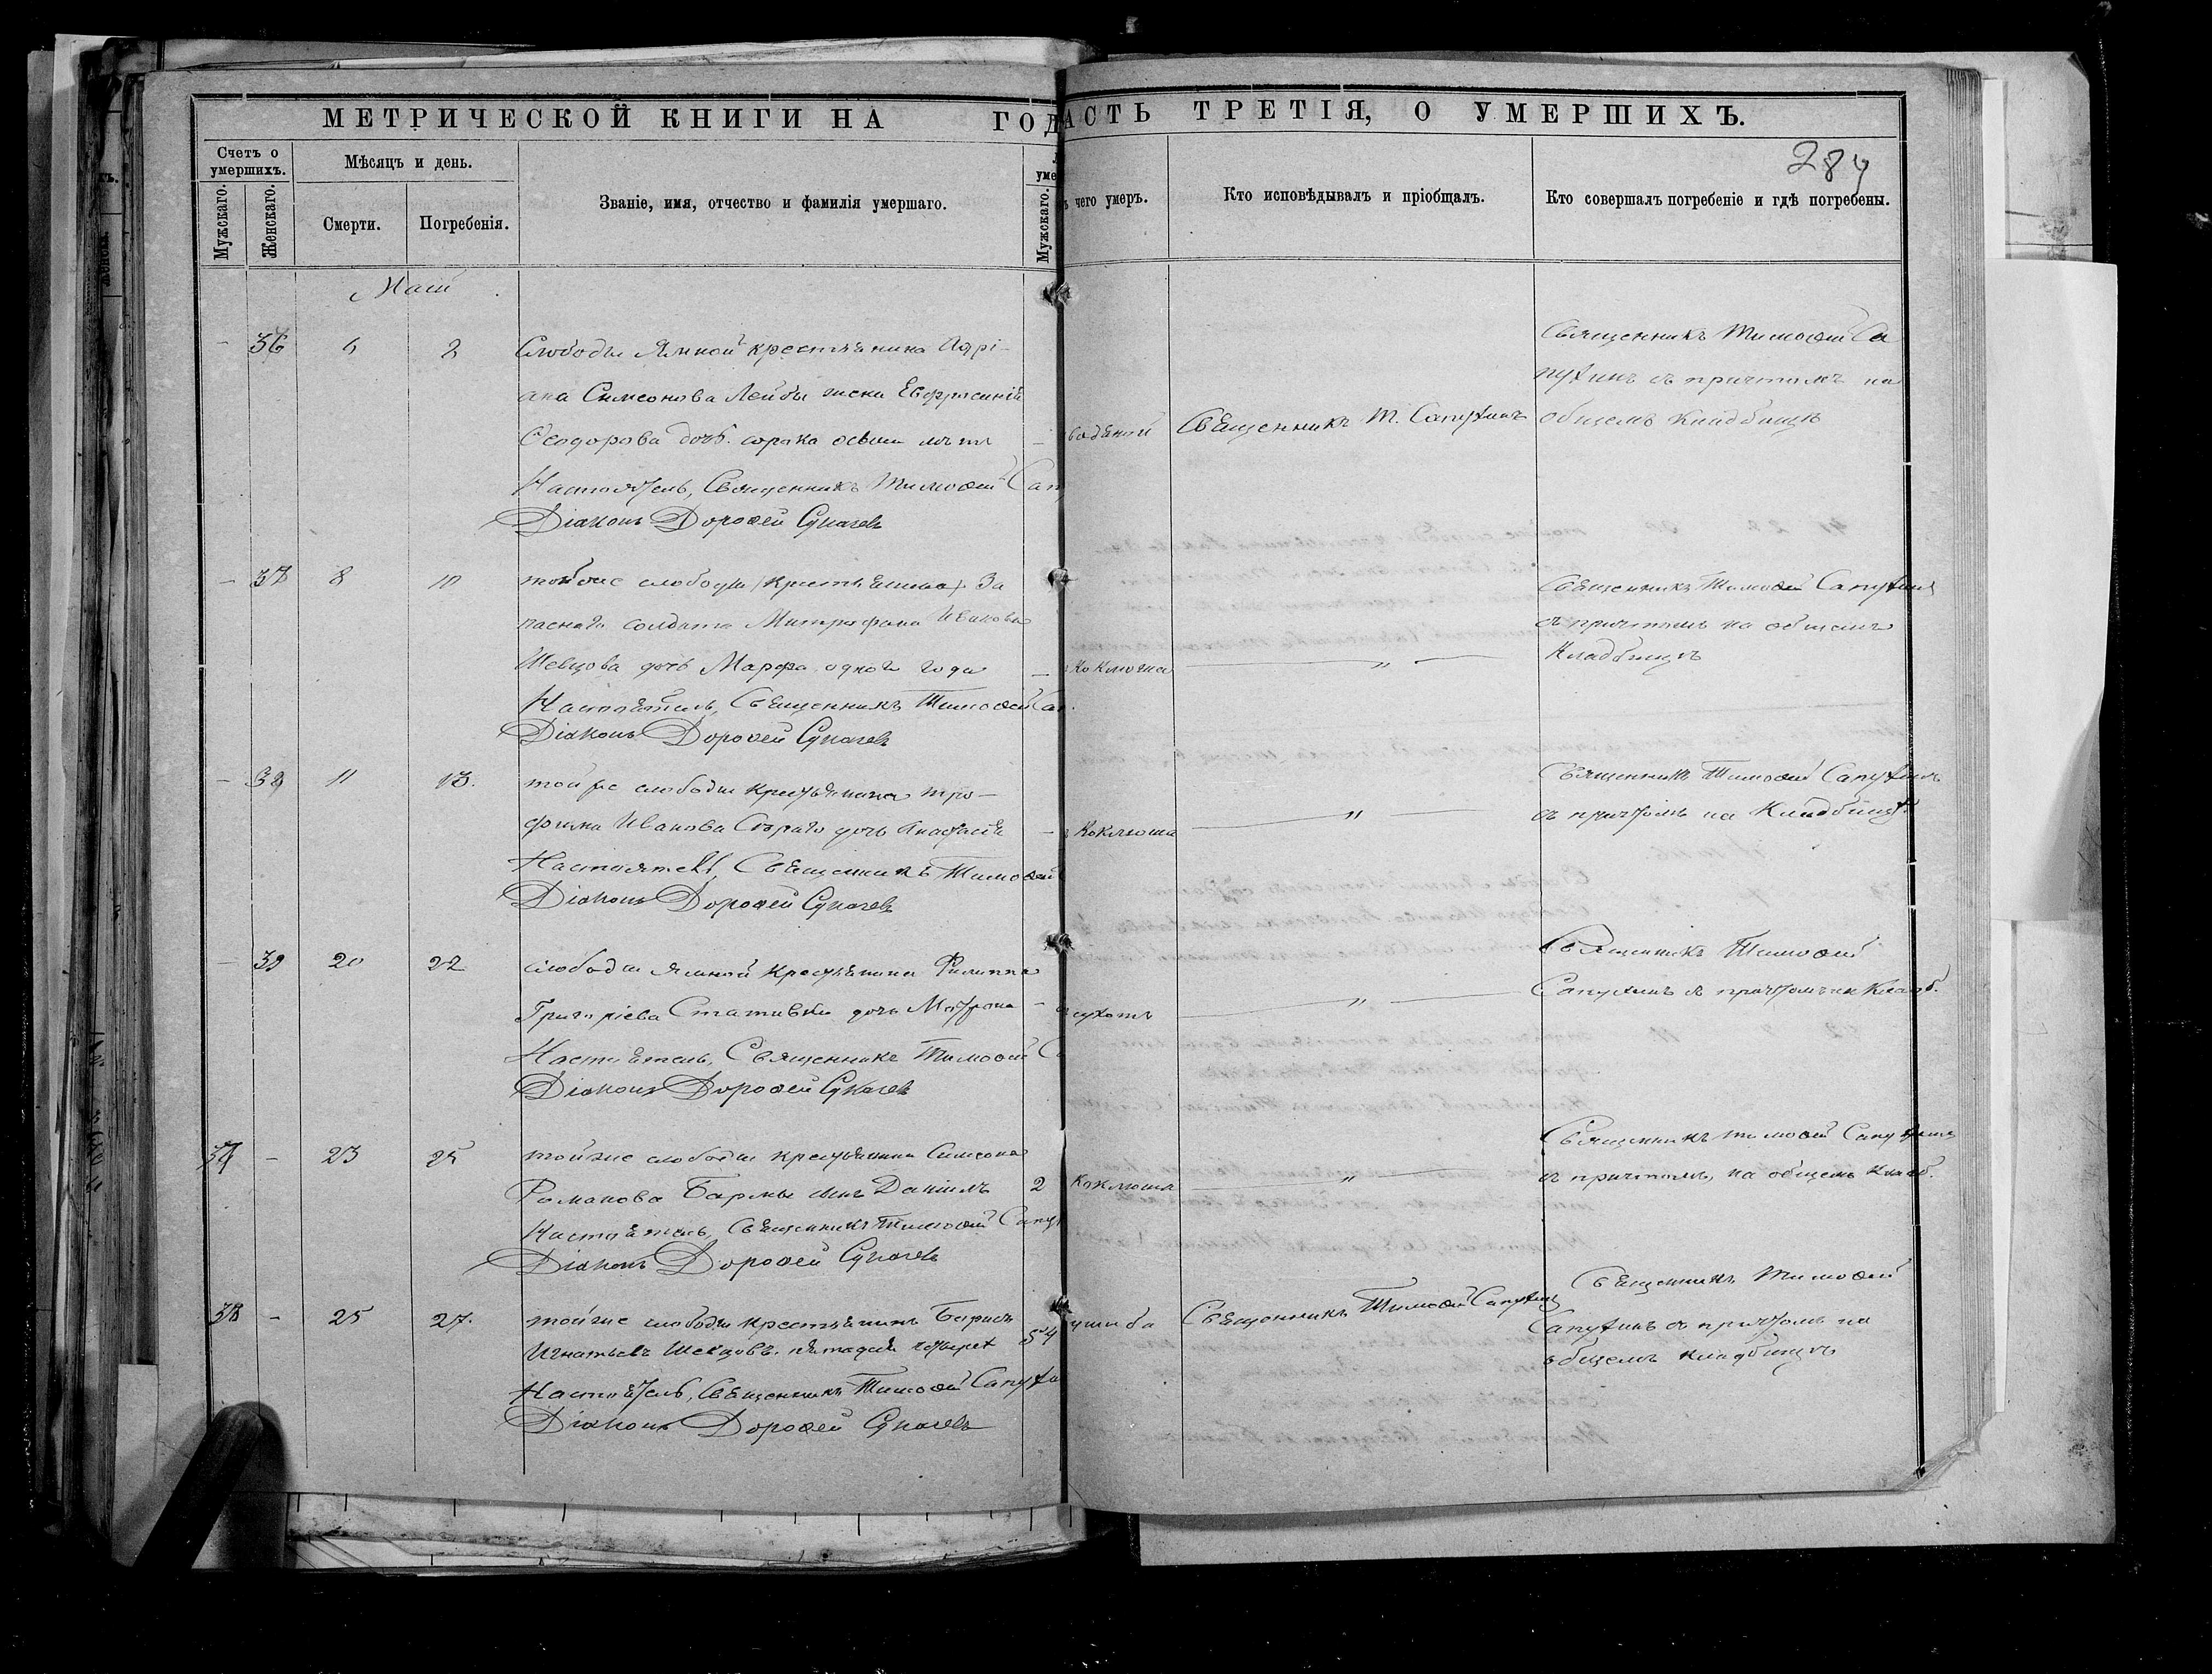 МЕТРИЧЕСКОЙ КНИГИ НА ГОД
АСТЬ ТРЕТІЯ, О УМЕРШИХЪ.
284
Счетъ о умершихъ.
Мужскаго.
Женскаго.
Мѣсяцъ и день.
Смерти.
Погребенія.
Званіе, имя, отчество и фамилія умершаго.
уме
Мужскаго.
чего умеръ.
Кто исповѣдывалъ и пріобщалъ.
Кто совершалъ погребеніе и гдѣ погребены.
Май
- 36 6 8
Слободы Ямной крестьянина Адрі-
ана Симеонова Лейбы жена Евфросинія
Ѳеодорова дочь. сорока осьми лѣтъ -
водяной
Священникъ Т. Сапухинъ
Священникъ Тимоѳей Са
пухинъ съ причтомъ на
общемъ кладбищѣ
Настоятель, Священникъ Тимоѳей Сап
Діаконъ Дороѳей Сукачевъ
- 37 8 10
тойже слободы (крестьянина) За
паснаго солдата Митрофана Иванова
Шевцова дочь Марфа одного года -
коклюша
"
Священникъ Тимоѳей Сапухинъ
съ причтомъ на общемъ
кладбищѣ
Настоятель, Священникъ Тимоѳей Сап
Діаконъ Дороѳей Сукачевъ
- 38 11 13.
тойже слободы крестьянина Тро-
фима Иванова дочь Анастасія -
коклюша
"
Священникъ Тимоѳей Сапухинъ
съ причтомъ на кладбищѣ
Настоятель, Священникъ Тимоѳей
Діаконъ Дороѳей Сукачевъ
- 39 20 22
слободы Ямной крестьянина Филиппа
Григоріева Стативки дочь Матрона -
сухотъ
"
Священникъ Тимоѳей
Сапухинъ съ причтомъ на кладб.
Настоятель, Священникъ Тимоѳей С
Діаконъ Дороѳей Сукачевъ
37 - 23 25
тойже слободы крестьянина Симеона
Романова Бармы сынъ Даніилъ 2
коклюша
"
Священникъ Тимоѳей Сапухинъ
съ причтомъ, на общемъ кладб.
Настоятель, Священникъ Тимоѳей Сапу
Діаконъ Дороѳей Сукачевъ
38 - 25 27.
тойже слободы крестьянинъ Борисъ
Игнатьевъ Шевцовъ. пятидеси четырехъ 54
ушиба
Священникъ Тимоѳей Сапухинъ
Священникъ Тимоѳей
Сапухинъ съ причтомъ на
общемъ кладбищѣ
Настоятель, Священникъ Тимоѳей Сапухи
Діаконъ Дороѳей Сукачевъ